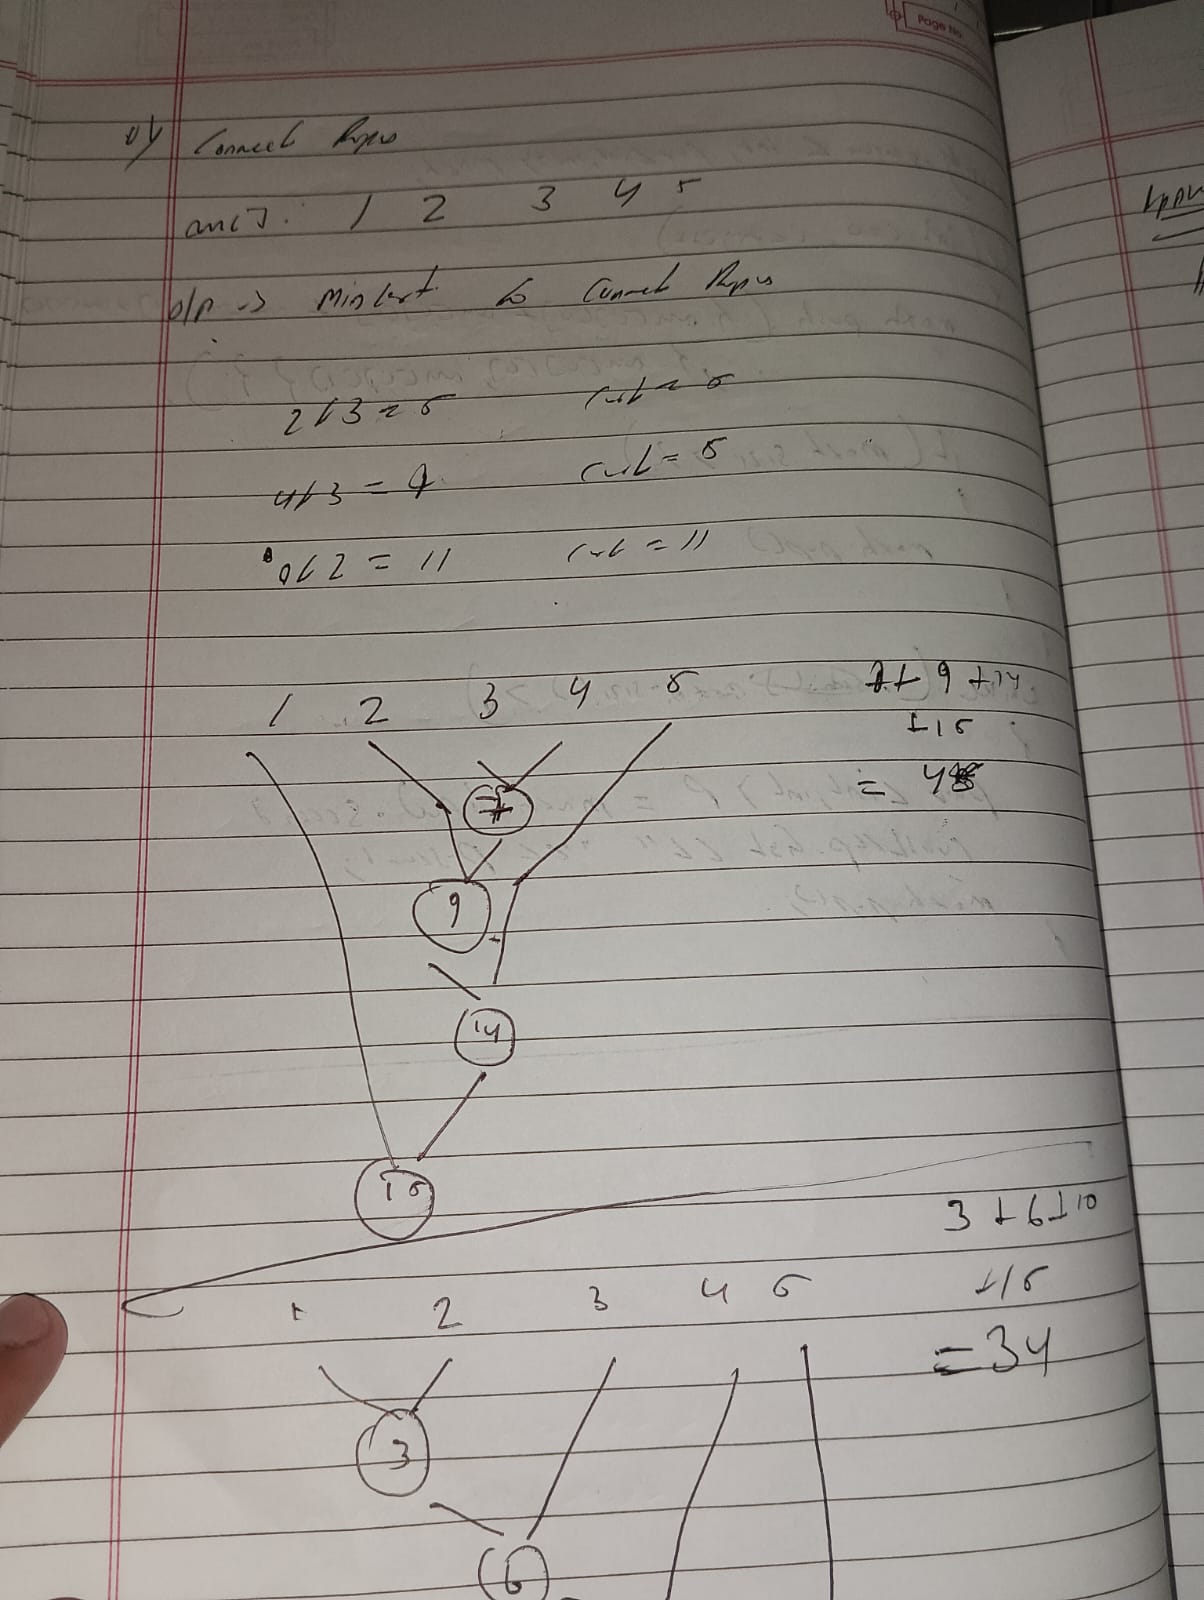 Page No.
Connect Ropes
arr[]: 1 2 3 4 5
o/p -> Min Cost to Connect Ropes
2+3 = 5 cost = 5
cost = 5
= 11 cost = 11
1 2 3 4 5
7 + 9 + 14
+ 15
= 45
7
9
14
15
3 + 6 + 10
+ 15
= 34
1 2 3 4 5
3
6